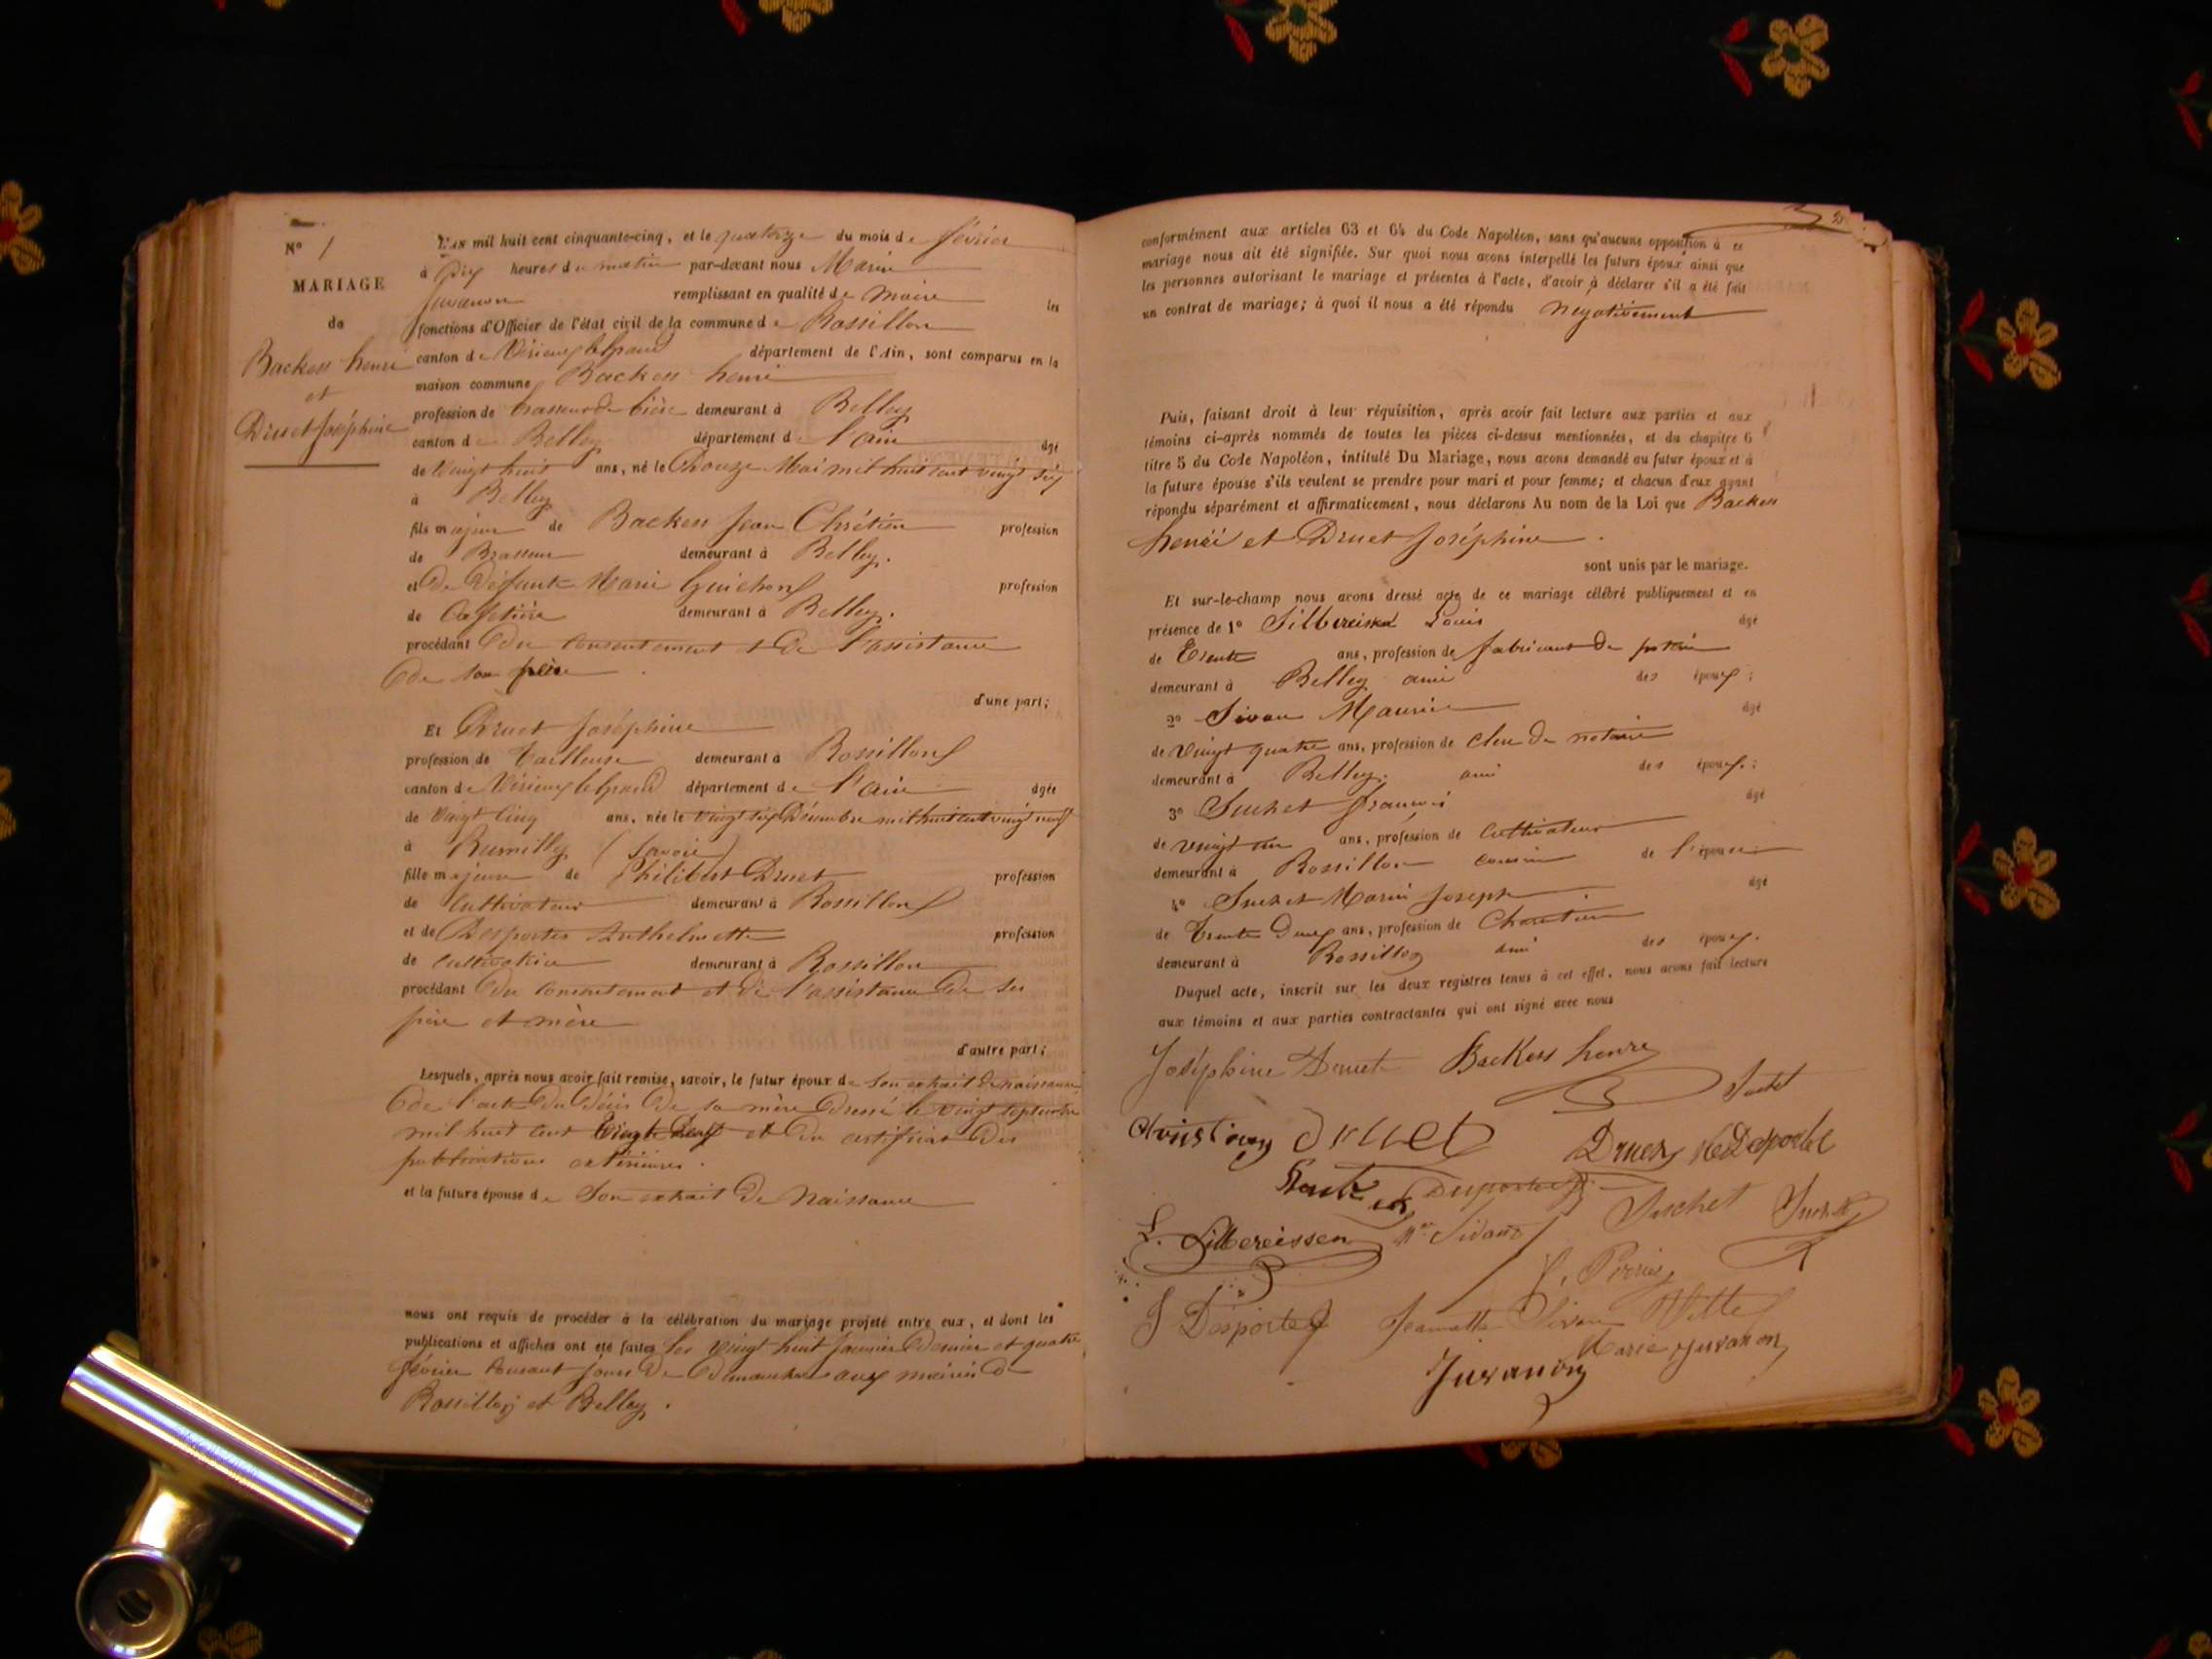 N° 1
MARIAGE
de
Backess henri
et
Druet Joséphine
L'AN mil huit cent cinquante-cinq, et le quatorze du mois de février
à Dix heures du matin par-devant nous Marin
Juvanon remplissant en qualité de Maire les
fonctions d'Officier de l'état civil de la commune de Rossillon
canton de Virieux le grand département de l'Ain, sont comparus en la
maison commune Backess henri
profession de brasseur de bière demeurant à Belley
canton de Belley département de l'ain âgé
de vingt huit ans, né le Douze Mai mil huit cent vingt six
à Belley
fils majeur de Backess Jean Chrétien profession
de Brasseur demeurant à Belley.
et De Défunte Marie Guichon profession
de Cafetière demeurant à Belley.
procédant Du consentement et De l'assistance
De son père
d'une part;
Et Druet Joséphine
profession de Tailleuse demeurant à Rossillon
canton de Virieux le grand département de l'ain âgée
de vingt cinq ans, née le vingt six Décembre mil huit cent vingt neuf
à Rumilly (Savoie)
fille majeure de Philibert Druet profession
de Cultivateur demeurant à Rossillon
et de Desportes Anthelmette profession
de cultivatrice demeurant à Rossillon
procédant Du consentement et de l'assistance De ses
père et mère
d'autre part;
Lesquels, après nous avoir fait remise, savoir, le futur époux de son extrait de naissance
De l'acte Du Décès De sa mère Dressé le vingt septembre
mil huit cent et Du certificat Des
publications extérieures.
et la future épouse de Son extrait De Naissance
nous ont requis de procéder à la célébration du mariage projeté entre eux, et dont les
publications et affiches ont été faites les vingt huit Janvier Dernier et quatre
février courant jours De Dimanche aux mairies De
Rossillon et Belley.
conformément aux articles 63 et 64 du Code Napoléon, sans qu'aucune opposition à ce
mariage nous ait été signifiée. Sur quoi nous avons interpellé les futurs époux ainsi que
les personnes autorisant le mariage et présentes à l'acte, d'avoir à déclarer s'il a été fait
un contrat de mariage; à quoi il nous a été répondu négativement
Puis, faisant droit à leur réquisition, après avoir fait lecture aux parties et aux
témoins ci-après nommés de toutes les pièces ci-dessus mentionnées, et du chapitre 6
titre 5 du Code Napoléon, intitulé Du Mariage, nous avons demandé au futur époux et à
la future épouse s'ils veulent se prendre pour mari et pour femme; et chacun d'eux ayant
répondu séparément et affirmativement, nous déclarons Au nom de la Loi que Backess
henri et Druet Joséphine
sont unis par le mariage.
Et sur-le-champ nous avons dressé acte de ce mariage célébré publiquement et en
présence de 1° Silbereissen Louis âgé
de Trente ans, profession de fabricant De
demeurant à Belley ami des époux;
2° Sivan Maurice âgé
de vingt quatre ans, profession de clerc De notaire
demeurant à Belley. ami des époux.;
3° Suchet François âgé
de vingt un ans, profession de cultivateur
demeurant à Rossillon cousin de l'épouse
4° Suchet Marin Joseph âgé
de Trente Deux ans, profession de Charretier
demeurant à Rossillon ami des époux.
Duquel acte, inscrit sur les deux registres tenus à cet effet, nous avons fait lecture
aux témoins et aux parties contractantes qui ont signé avec nous
Joséphine Druet Backess henry
Druet
L. Silbereissen Sivan Suchet Suchet
J Desportes Jeannette Sivan
Marie Juvanon
Juvanon